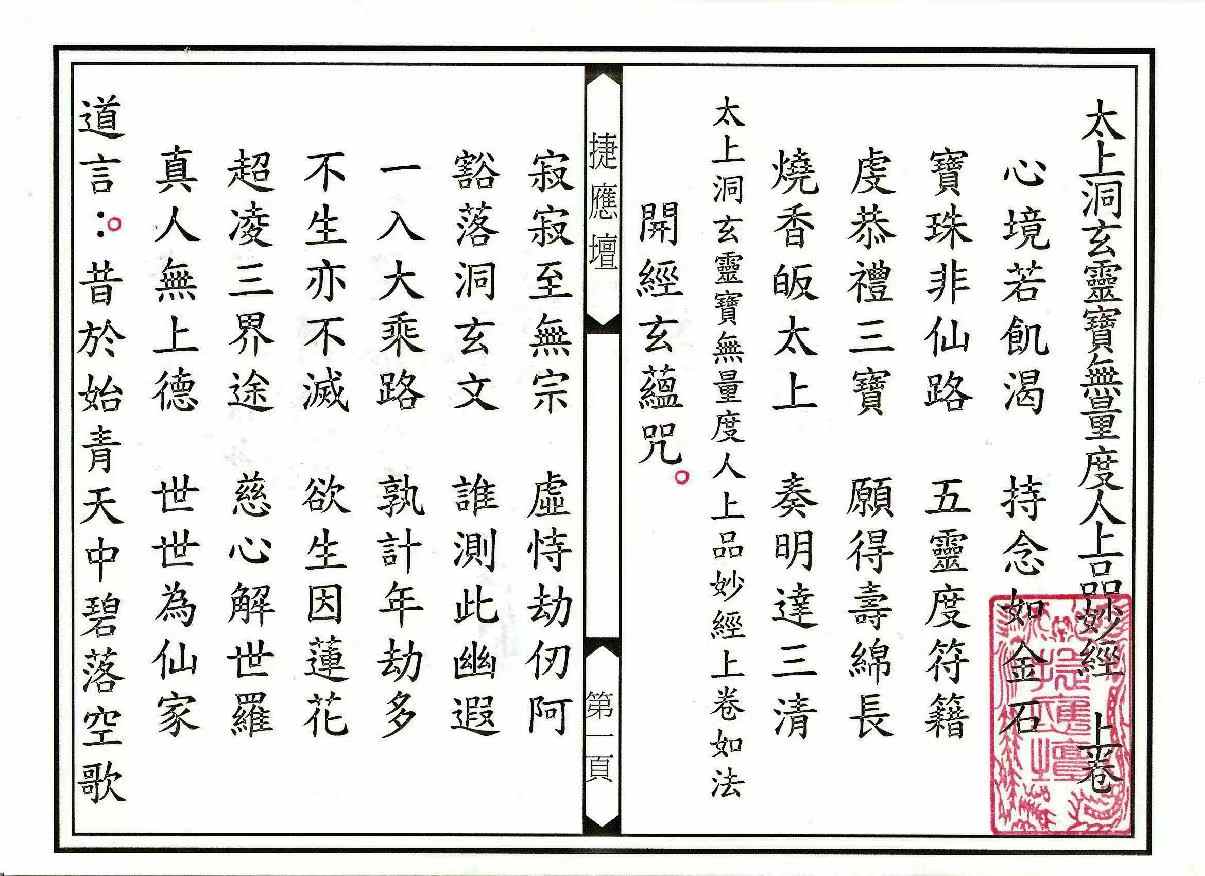 太上洞玄靈寶無量度人上品妙經 上卷
心境若飢渴 持念如金石
寶珠非仙路 五靈度符籍
虔恭禮三寶 願得壽綿長
燒香皈太上 奏明達三清
太上洞玄靈寶無量度人上品妙經上卷如法
開經玄蘊咒。
捷應壇
第一頁
寂寂至無宗 虛恃劫仞阿
豁落洞玄文 誰測此幽遐
一入大乘路 孰計年劫多
不生亦不滅 欲生因蓮花
超凌三界途 慈心解世羅
真人無上德 世世為仙家
道言：。昔於始青天中碧落空歌